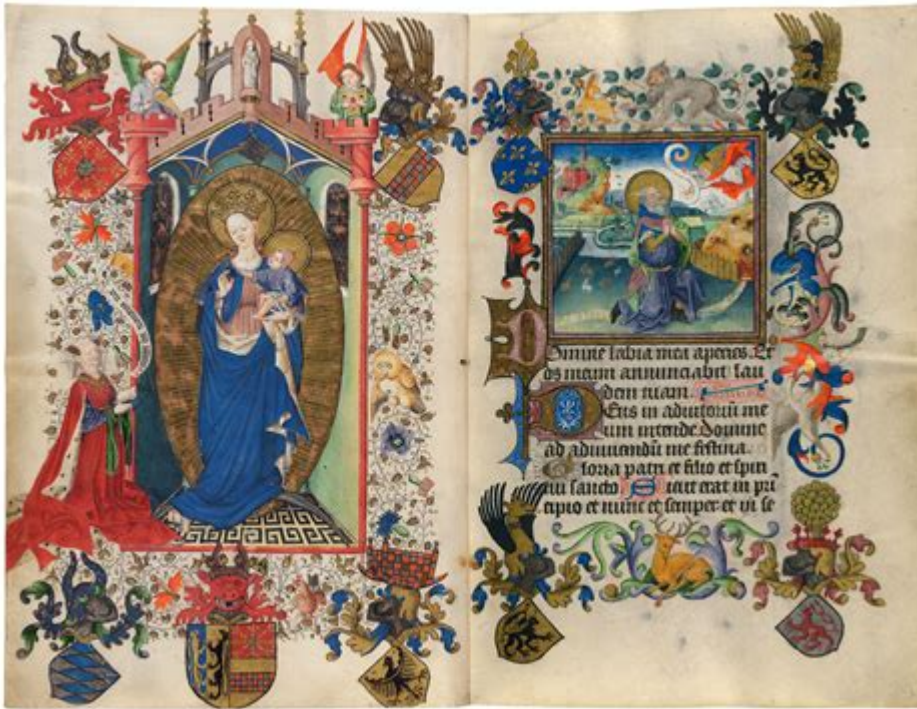 Domine labia mea aperies. Et
os meum annunciabit lau
dem tuam.
Deus in adiutoriū me
um intende. Domine
ad adiuuandū me festina.
Gloria patri et filio et spiri
tui sancto Sicut erat in pri
cipio et nunc et semper et in se